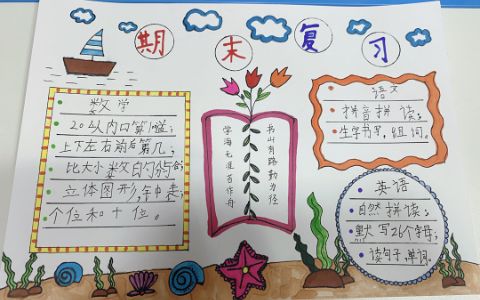 期末复习
数学
20以内口算
上下左右前后第几；
比大小 数的
立体图形，钟表
个位和十位。
书山有路勤为径
学海无涯苦作舟
语文
拼音拼读；
生字书写，组词。
英语
自然拼读；
默写26个字母；
读句子，单词。